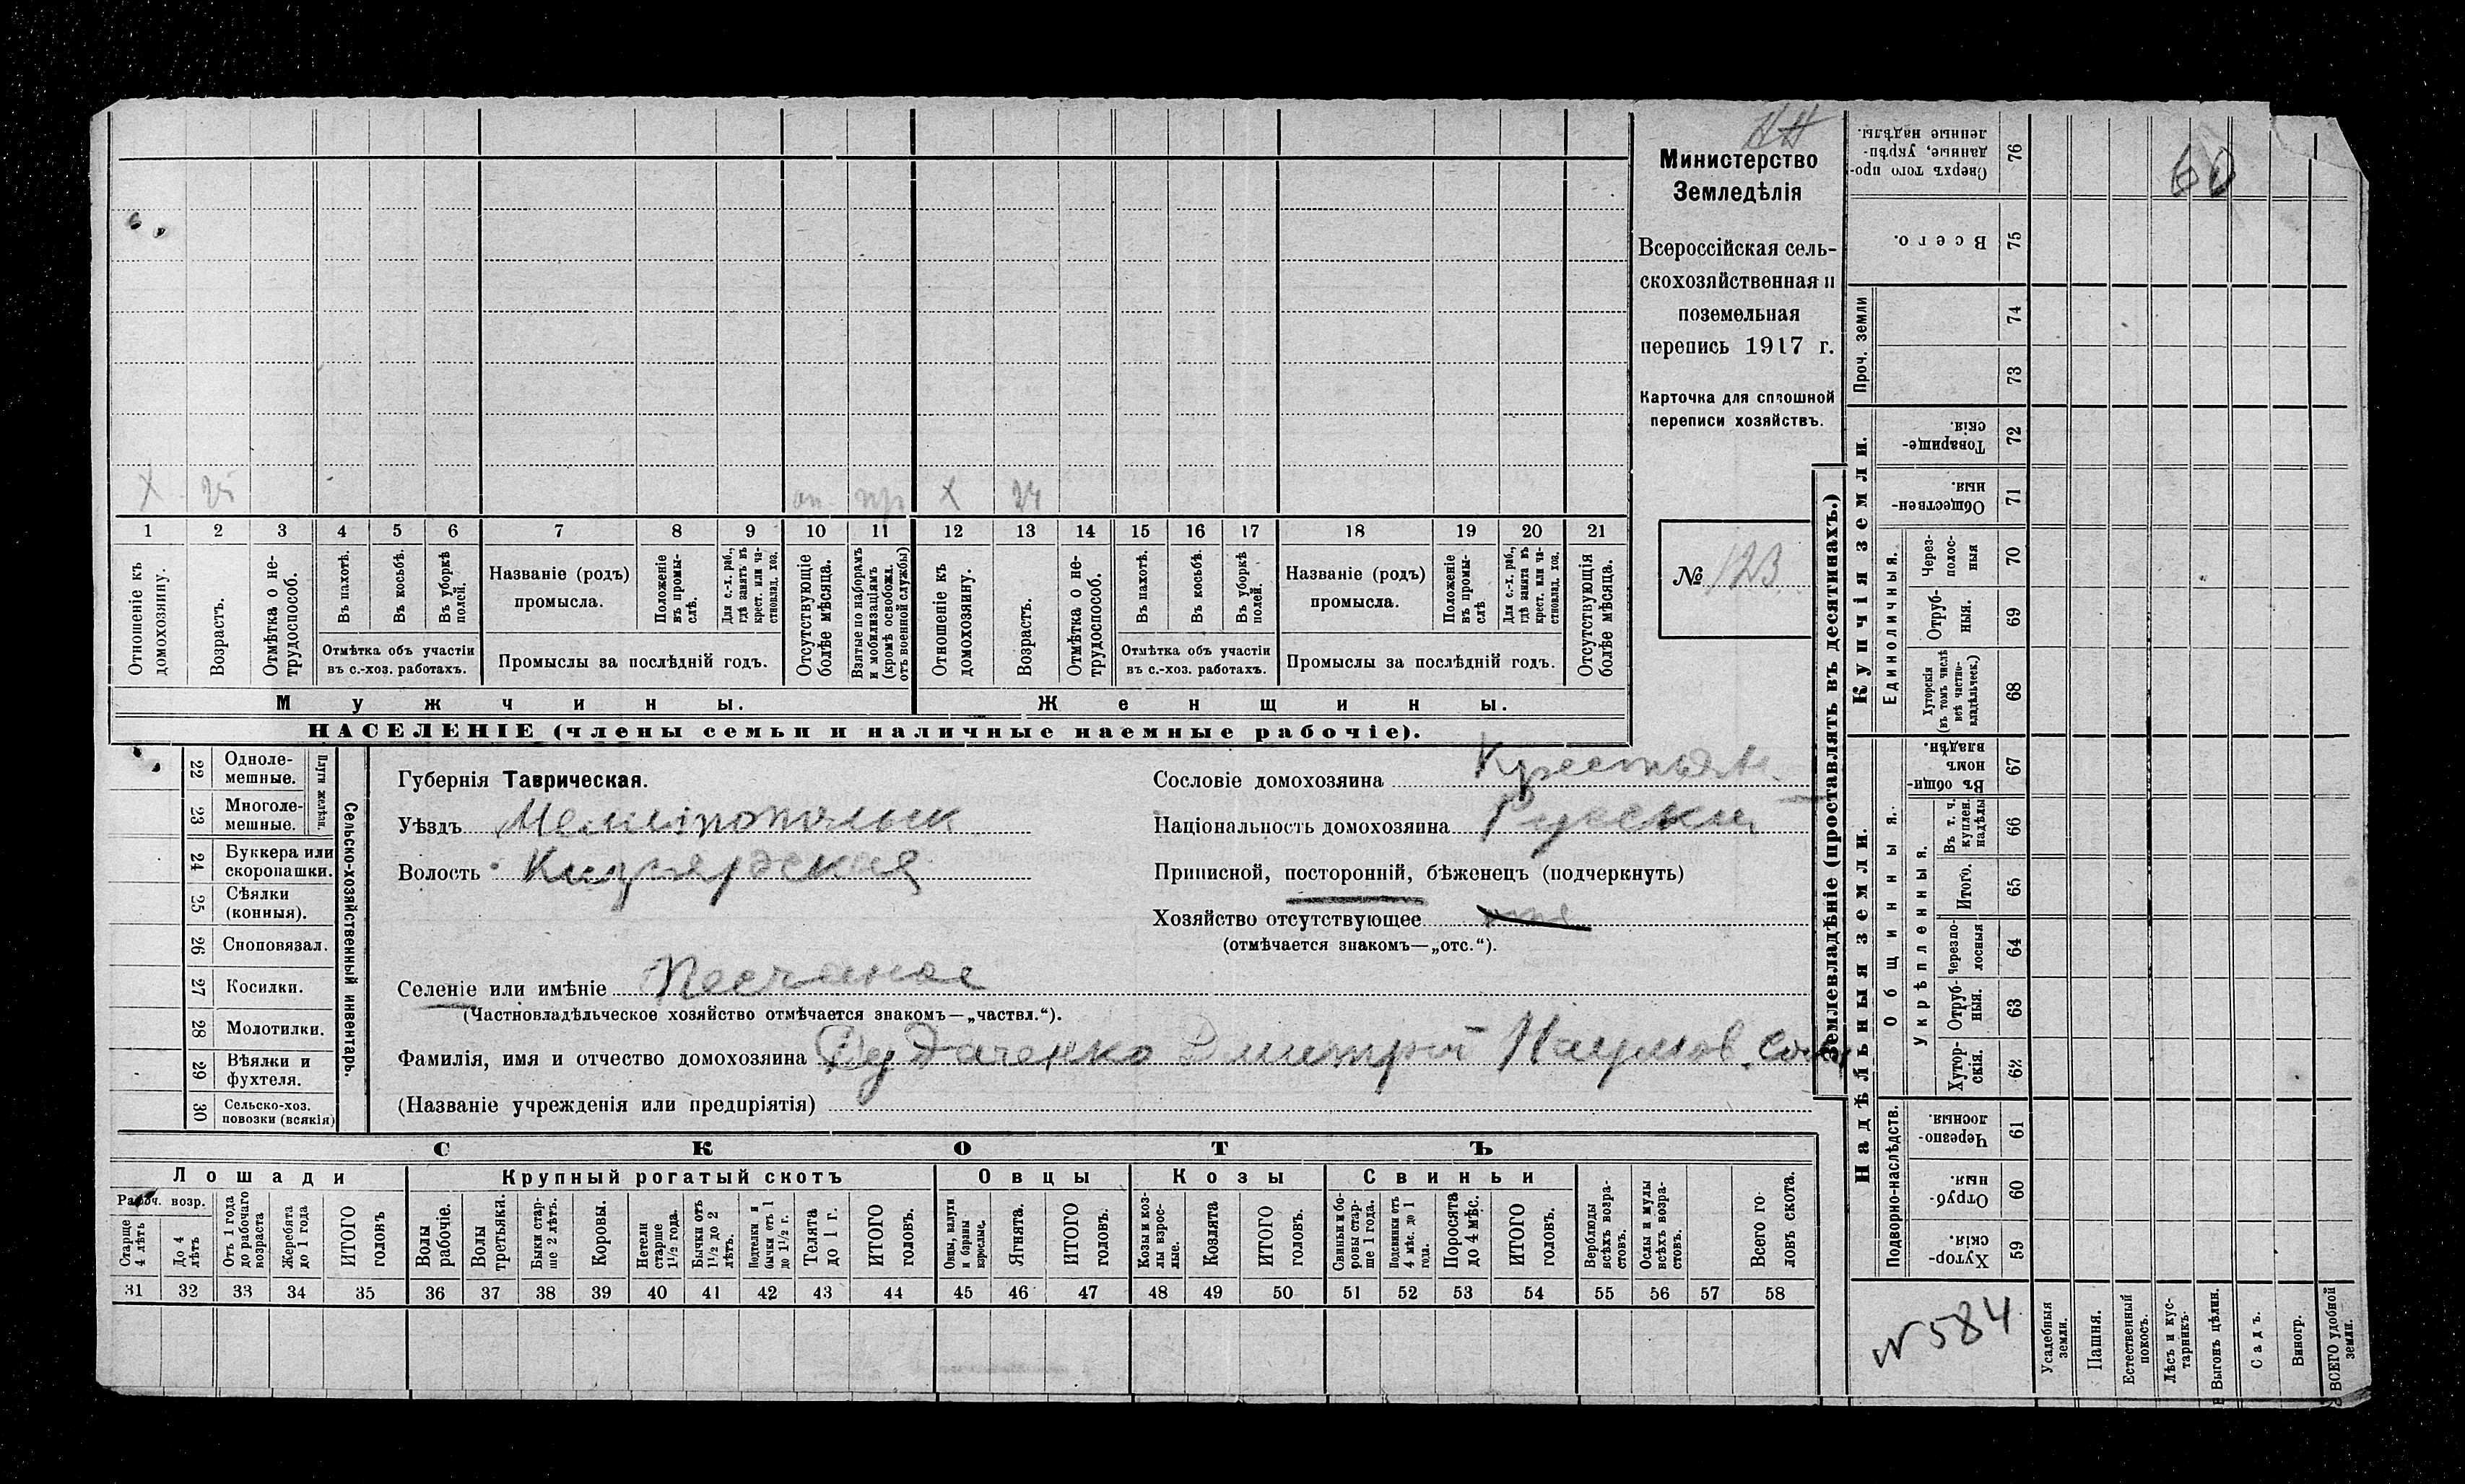 Х 25 оп. пр Х 24
1 2 3 4 5 6 7 8 9 10 11 12 13 14 15 16 17 18 19 20 21
Отношеніе къ домохозяину.
Возрастъ.
Отмѣтка о не-
трудоспособ.
Въ пахотѣ.
Въ косьбѣ.
Въ уборкѣ полей.
Отмѣтка объ участіи
въ с.-хоз. работахъ.
Названіе (родъ)
промысла.
Положеніе
въ промы-
слѣ.
Для с.-х. раб.,
гдѣ занятъ въ
крест. или ча-
стновлад. хоз.
Промыслы за послѣдній годъ.
Отсутствующіе
болѣе мѣсяца.
Взятые по наборамъ
и мобилизаціямъ
(кромѣ освобожд.
отъ военной службы)
Отношеніе къ
домохозяину.
Возрастъ.
Отмѣтка о не-
трудоспособ.
Въ пахотѣ.
Въ косьбѣ.
Въ уборкѣ
полей.
Отмѣтка объ участіи
въ с.-хоз. работахъ.
Названіе (родъ)
промысла.
Положеніе
въ промы-
слѣ
Для с.-х. раб.,
гдѣ занята въ
крест. или ча-
стновлад. хоз.
Промыслы за послѣдній годъ.
Отсутствующія
болѣе мѣсяца.
Мужчины.
Женщины.
НАСЕЛЕНІЕ (члены семьи и наличные наемные рабочіе).
Министерство
Земледѣлія
Всероссійская сель-
скохозяйственная и
поземельная
перепись 1917 г.
Карточка для сплошной
переписи хозяйствъ.
№ 123
22 Одноле-
мешные.
23 Многоле-
мешные.
Плуги желѣзн.
24 Буккера или
скоропашки.
25 Сѣялки
(конныя).
26 Сноповязал.
27 Косилки.
28 Молотилки.
29 Вѣялки и
фухтеля.
30 Сельско-хоз.
повозки (всякія)
Сельско-хозяйственный инвентарь.
Губернія Таврическая.
Уѣздъ Мелитопольск
Волость Кизіярская
Селеніе или имѣніе Песчаное
(Частновладѣльческое хозяйство отмѣчается знакомъ—„частвл.“).
Фамилія, имя и отчество домохозяина Дмитрій Наумов.
(Названіе учрежденія или предпріятія)
Сословіе домохозяина Крестьян.
Національность домохозяина Русскій
Приписной, посторонній, бѣженецъ (подчеркнуть)
Хозяйство отсутствующее
(отмѣчается знакомъ—„отс.“).
СКОТЪ
Лошади
Крупный рогатый скотъ
Овцы
Козы
Свиньи
Рабоч. возр.
Старше
4 лѣтъ
До 4
лѣтъ
Отъ 1 года
до рабочаго
возраста
Жеребята
до 1 года
ИТОГО
головъ
Волы
рабочіе.
Волы
третьяки.
Быки стар-
ше 2 лѣтъ.
Коровы.
Нетели
старше
1½ года.
Бычки отъ
1½ до 2
лѣтъ.
Подтелки и
бычки отъ 1
до 1½ г.
Телята
до 1 г.
ИТОГО
головъ.
Овцы, валухи
и бараны
взрослые.
Ягнята.
ИТОГО
головъ.
Козы и коз-
лы взрос-
лые.
Козлята
ИТОГО
головъ.
Свиньи и бо-
ровы стар-
ше 1 года.
Подсвинки отъ
4 мѣс. до 1
года.
Поросята
до 4 мѣс.
ИТОГО
головъ.
Верблюды
всѣхъ возра-
стовъ.
Ослы и мулы
всѣхъ возра-
стовъ.
Всего го-
ловъ скота.
31 32 33 34 35 36 37 38 39 40 41 42 43 44 45 46 47 48 49 50 51 52 53 54 55 56 57 58
Землевладѣніе (проставлять въ десятинахъ.)
Надѣльныя земли.
Купчія земли.
Проч. земли
Подворно-наслѣдств.
Общинныя.
Укрѣпленныя.
Единоличныя.
Сверхъ того про-
данные, укрѣп-
ленные надѣлы.
76
Всего.
75
74
73
Товарище-
скія.
72
Обществен-
ныя.
71
Через-
полос-
ныя
70
Отруб-
ныя.
69
Хуторскія
(въ томъ числѣ
всѣ частно-
владѣльческ.)
68
Въ общи-
номъ
владѣн.
67
Въ т. ч.
куплен.
надѣлы
66
Итого.
65
Черезпо-
лосныя
64
Отруб-
ныя.
63
Хутор-
скія.
62
Черезпо-
лосныя.
61
Отруб-
ныя.
60
Хутор-
скія.
59
60
N 584
Усадебныя
земли.
Пашня.
Естественный
покосъ.
Лѣсъ и кус-
тарникъ.
Выгонъ цѣлин.
Садъ.
Виногр.
ВСЕГО удобной
земли.